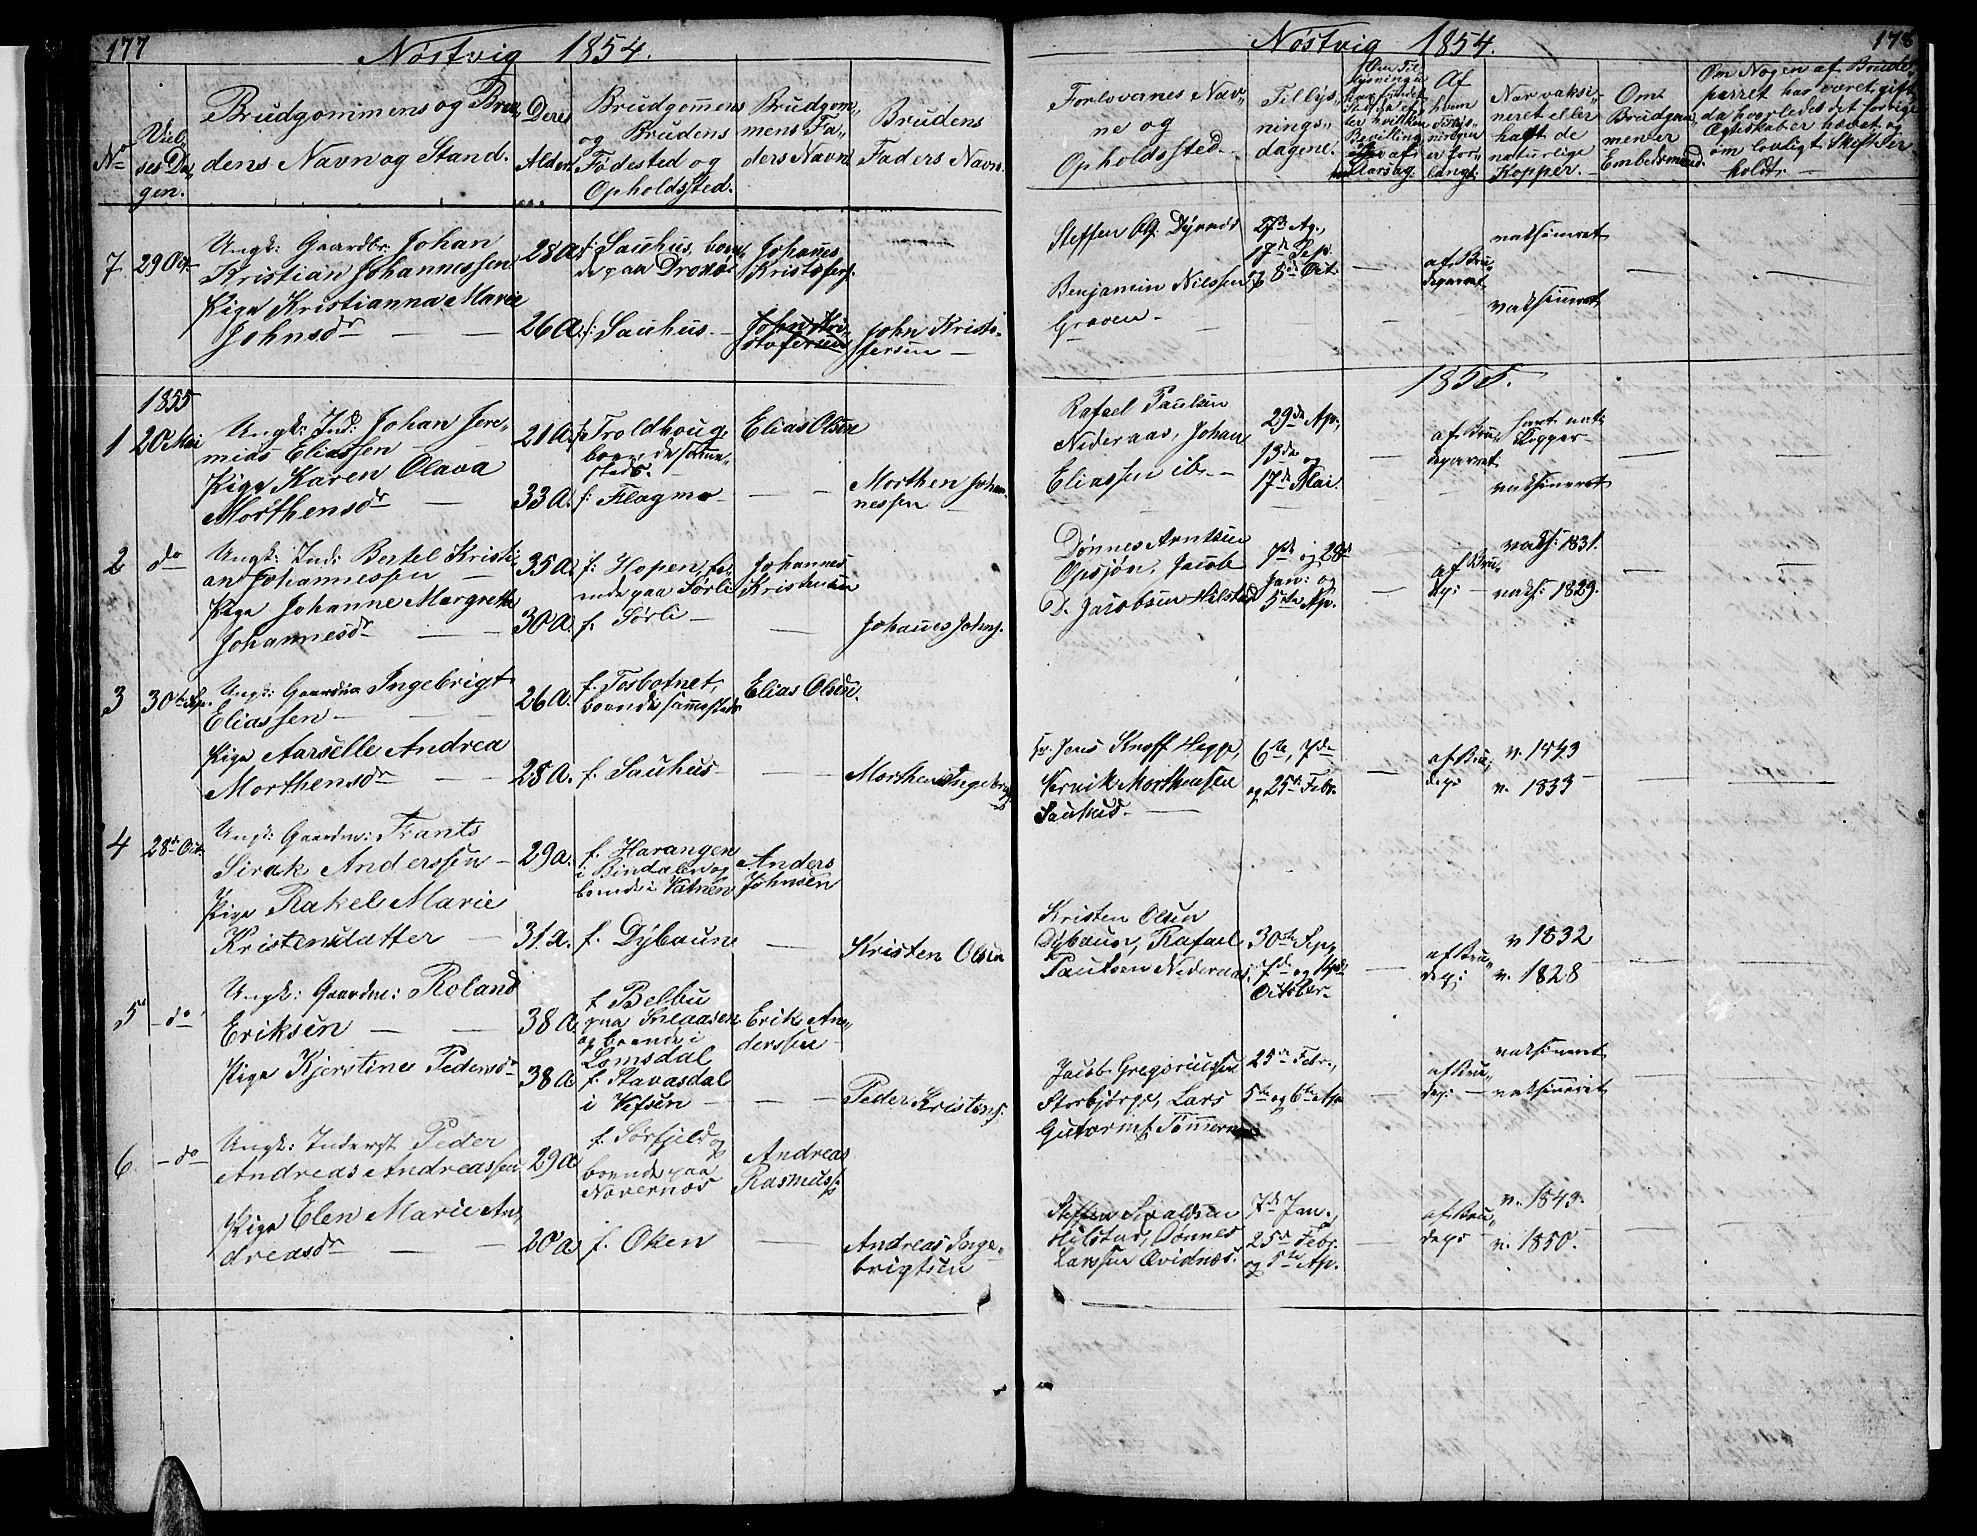 177
Nøstvig 1854.
No
Viel-
ses Da-
gen.
Brudgommens og Bru-
dens Navn og Stand.
Deres
Alder.
Brudgommens
og Brudens
Fødested og
Opholdsted.
Brudgom-
mens Fa-
ders Navn
Brudens
Faders Navn
7 29 Oct
Ungk: Gaardbr: Johan
Kristian Johannessen
28 a.
f: Sauhus, boen-
de paa
Johannes
Kristofers.
Pige Kristianna Marie
Johnsdr
26 a.
f: Sauhus
John Kri-
stofersen
John Kristo-
fersen
1855
1 20 Mai
Ungk: Ind: Johan Jere-
mias Eliassen
21 a.
f: Troldhoug,
boende samme-
steds.
Elias Olsen
Pige Karen Olava
Morthensdr
33 a.
f: Flagmo
Morthen Johan-
nessen
2 do
Ungk: Ind: Bertel Kristi-
an Johannessen
35 a.
f: Hopen, bo-
ende paa Sørli
Johannes
Kristensen
Pige Johanne Margrethe
Johannesdr
30 a.
f. Sørli
Johannes Johns.
3 30te Sep.
Ungk: Gaardm Ingebrigt
Eliassen
26 a.
f. Tosbotnet,
boende sammesteds
Elias Olsen.
Pige Aarselle Andrea
Morthensdr
28 a.
f. Sauhus
Morthen Ingebrigts
4 28de Oct.
Ungk: Gaardm: Frants
Sirak Anderssen
29 a.
f. Harangen
i Bindalen og
boende i Vatnen
Anders
Johnsen
Pige Rakel Marie
Kristensdatter
31. a.
f. Dybaun
Kristen Olsen
5 do
Ungk: Gaardm: Roland
Eriksen
38 a
f. Belbu
paa Snaasen
og boende i
Lomsdal
Erik An-
derssen
Pige Kjerstine Pedersdr
38 a
f. Stavasdal
i Vefsen
Peder Kristens.
6 do
Ungk: Inderst Peder
Andreas Andreassen
29 a
f. Sørfjeld og
boende paa
Navernes
Andreas
Rasmuss.
Pige Elen Marie An-
dreasdr
20 a
f. Oken
Andreas Inge-
brigtsen
Nøstvig 1854.
178
Forlovernes Nav-
ne og
Opholdssted.
Tillys-
nings-
dagene.
Af
hvem
er for-
langt.
Naar vaksi-
neret eller
haft de
naturlige
Kopper.
Om
Brudgom-
men er
Embedsmand.
Om Nogen af Brude-
parret har været gift,
da hvorledes det forrige
Ægteskab er hævet, og
om lovligt Skifte er
holdt.
Steffen Ols.
27de Ag.,
17de Sep.
8de Oct.
Benjamin Nilssen
Graven
af Bru-
deparret
vaksineret
vaksineret
1855.
Rafael Paulsen
Nederaas, Johan
Eliassen ib.
29de Ap.,
13de og
17de Mai.
af Bru-
deparret
havt nat:
Kopper
vaksineret
Dønnes Arntsen
Opsjøn, Jacob
D. Jacobsen Hilstad
7de og 28de
Jan: og
5te Ap.
af Bru-
dep:
vaks: 1831.
vaks: 1829.
Hr. Jens Knoff Hegge,
Morthensen
Sauhus.
6te, 7de
og 25de Febr.
af Bru-
dep:
v. 1843
v. 1833
Kristen Olsen
Dybaun, Rafael
Paulsen Nederaas.
30te Sep,
7de og 14de
October.
af Bru-
dep:
v. 1832
v. 1828
Jacob Gregoriussen
Storbjørge, Lars
Gutorms. Tømmernes
25de Febr.,
5te og 6te Ap.
af Bru-
dep:
vaksineret
vaksineret
Steffen Sivaldsen
Hilstad, Dønnes
Larssen Qvidnæs.
7de Jan.,
25de Febr.
og 5te Ap.
af Bru-
dep:
v. 1843.
v. 1850.